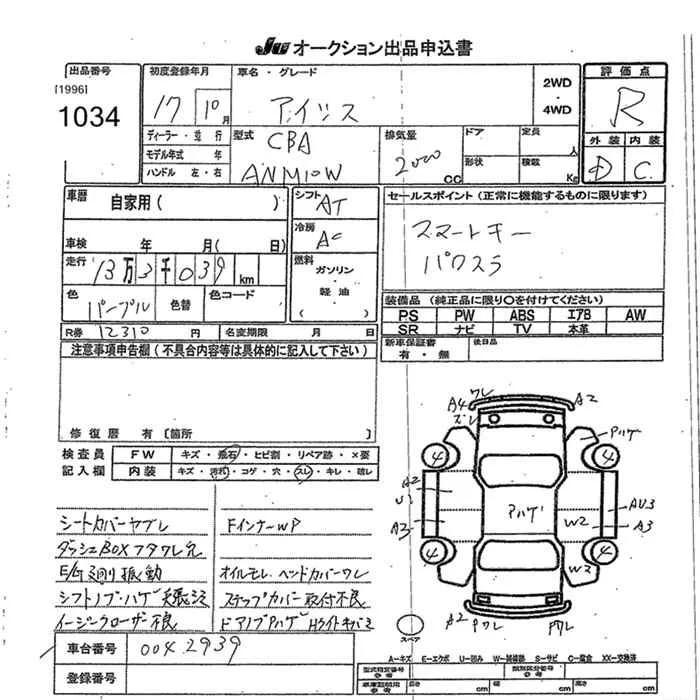 JU オークション出品申込書
出品番号
[1996]
1034
初度登録年月
17 10月
車名・グレード
アイシス
2WD
・
4WD
評価点
R
外装 内装
D C
ディーラー・並行
モデル年式 年
ハンドル 左・右
型式
CBA
ANM10W
排気量
2000
cc
ドア
定員
人
形状
積載
Kg
車歴
自家用( )
車検 年 月( 日)
走行
13万3千039km
色
パープル
色替
色コード
R券 12310 円
名変期限 月 日
シフト
AT
冷房
AC
燃料
ガソリン
・
軽油
( )
セールスポイント(正常に機能するものに限ります)
スマートキー
パワスラ
装備品(純正品に限り○を付けてください)
PS PW ABS エアB AW
SR ナビ TV 本革
新車保証書
有・無
後日品
注意事項申告欄(不具合内容等は具体的に記入して下さい)
修復歴 有〔箇所 〕
検査員
記入欄
FW キズ・飛石・ヒビ割・リペア跡・×要
内装 キズ・汚れ・コゲ・穴・スレ・キレ・破レ
シートカバーヤブレ
ダッシュBOXフタワレ欠
E/G廻り振動
シフトノブ・ハゲ
イージークローザー不良
FインナーWP
オイルモレ ヘッドカバーワレ
ステップカバー取付不良
ドアノブアハゲ Hライトキバミ
ワレ
A4
ズレ
A2
アハゲ
4
4
A2
U1
A3
アハゲ
W2
AU3
A3
4
4
W3
A2
Pワレ
Pワレ
スペア
車台番号 0042939
登録番号
A=キズ E=エクボ U=凹み W=補修跡 S=サビ C=腐食 XX=交換済
型式指定番号
参考
類別区分番号
参考
車庫証明用
参考
長さ cm
幅 cm
高さ cm